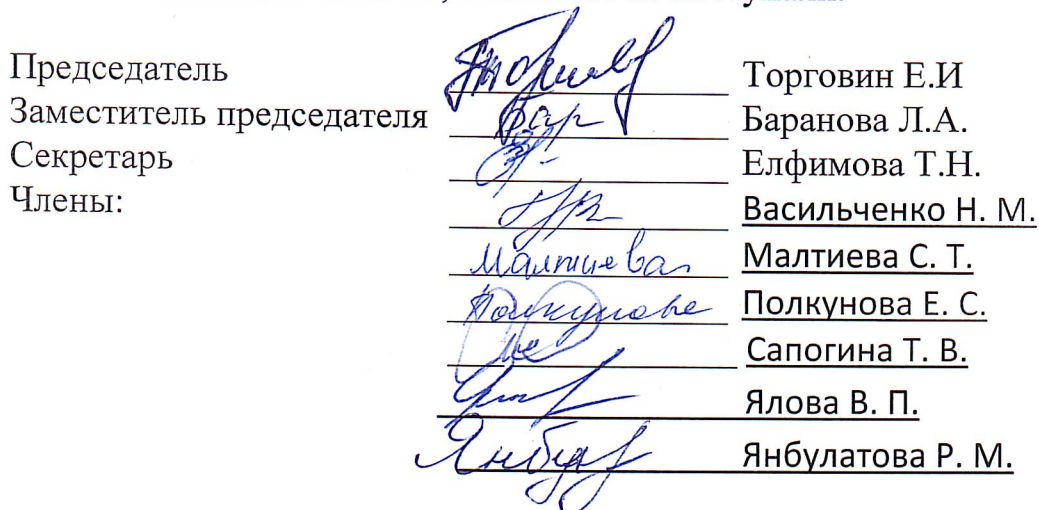 Председатель Торговин Е.И
Заместитель председателя Бар Баранова Л.А.
Секретарь Елфимова Т.Н.
Члены: Васильченко Н. М.
Малтиева Малтиева С. Т.
Полкунова Полкунова Е. С.
Сапогина Т. В.
Ялова В. П.
Янбул Янбулатова Р. М.